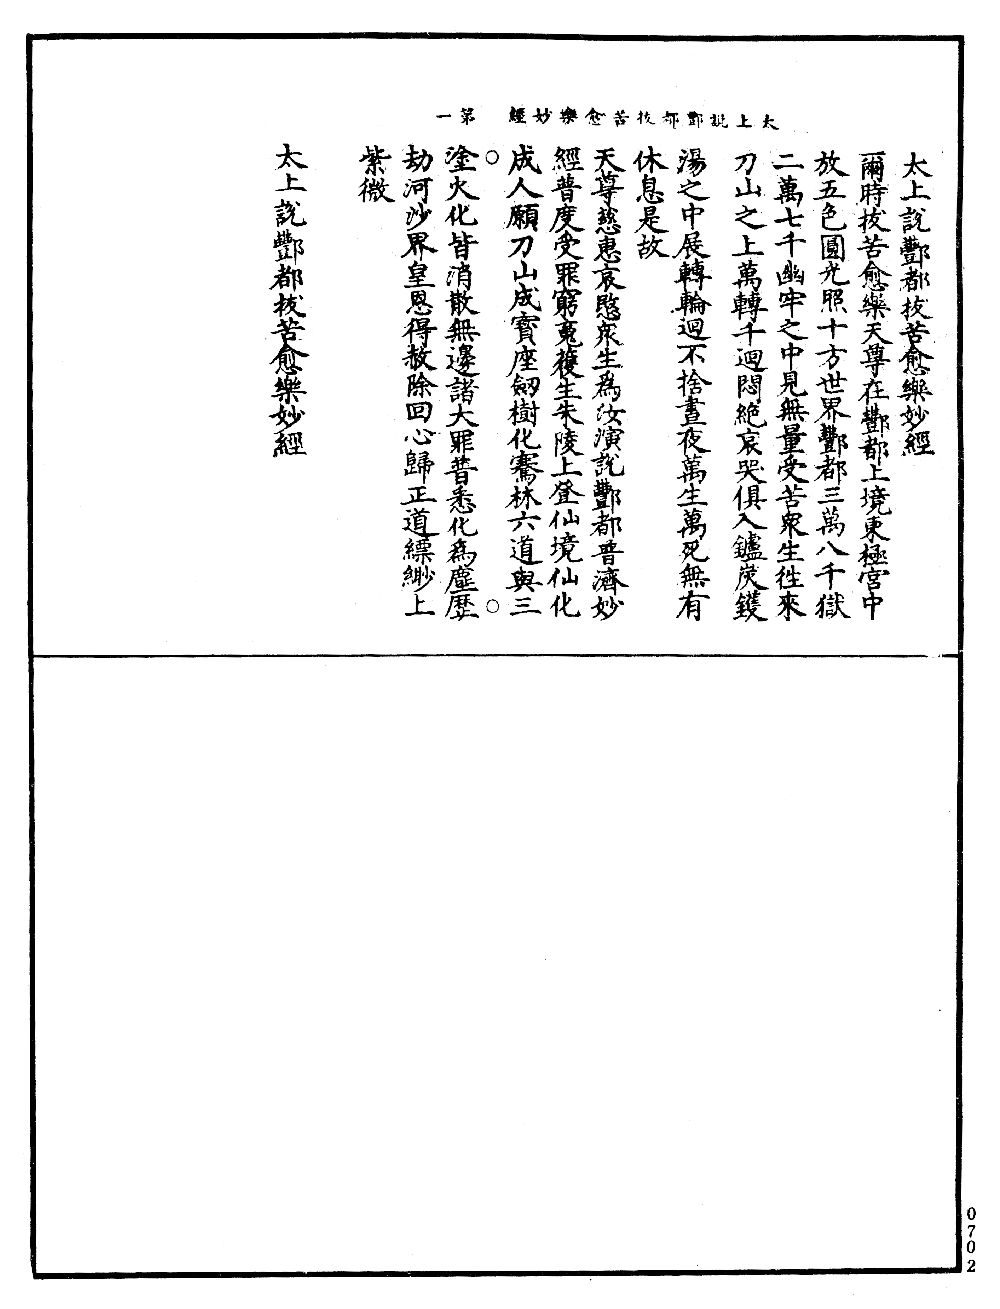 太上說酆都拔苦愈樂妙經　第一
太上說酆都拔苦愈樂妙經
爾時拔苦愈樂天尊在酆都上境東極宮中
放五色圓光照十方世界酆都三萬八千獄
二萬七千幽牢之中見無量受苦衆生徃來
刀山之上萬轉千迴悶絶哀哭俱入鑪炭鑊
湯之中展轉輪迴不捨晝夜萬生萬死無有
休息是故
天尊慈惠哀愍衆生爲汝演說酆都普濟妙
經普度受罪窮䰟獲生朱陵上登仙境仙化
成人願刀山成寶座劒樹化騫林六道與三
○塗火化皆消散無邊諸大罪普悉化爲塵歷○
劫河沙界皇恩得赦除回心歸正道縹緲上
紫微
太上說酆都拔苦愈樂妙經
0702